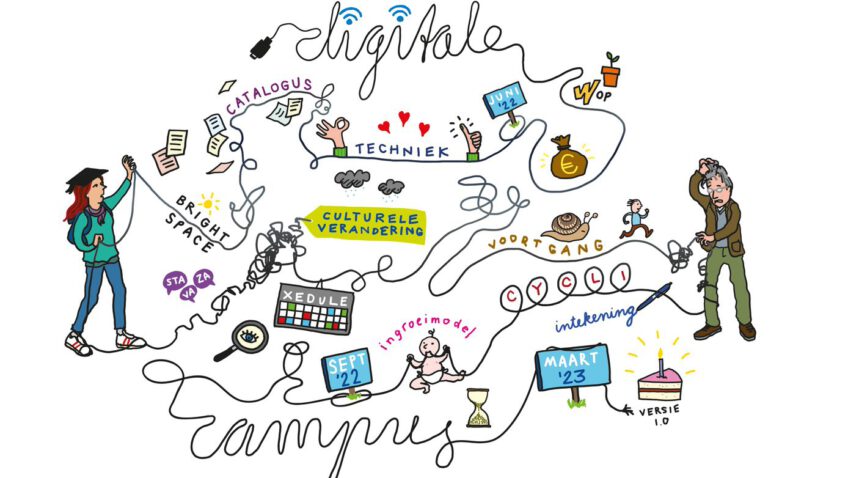 digitale
CATALOGUS
JUNI
'22
WOP
TECHNIEK
€
BRIGHT
SPACE
CULTURELE
VERANDERING
VOORTGANG
STA
VA
ZA
XEDULE
CYCLI
ingroeimodel
intekening
SEPT
'22
MAART
'23
VERSIE
1.0
campus